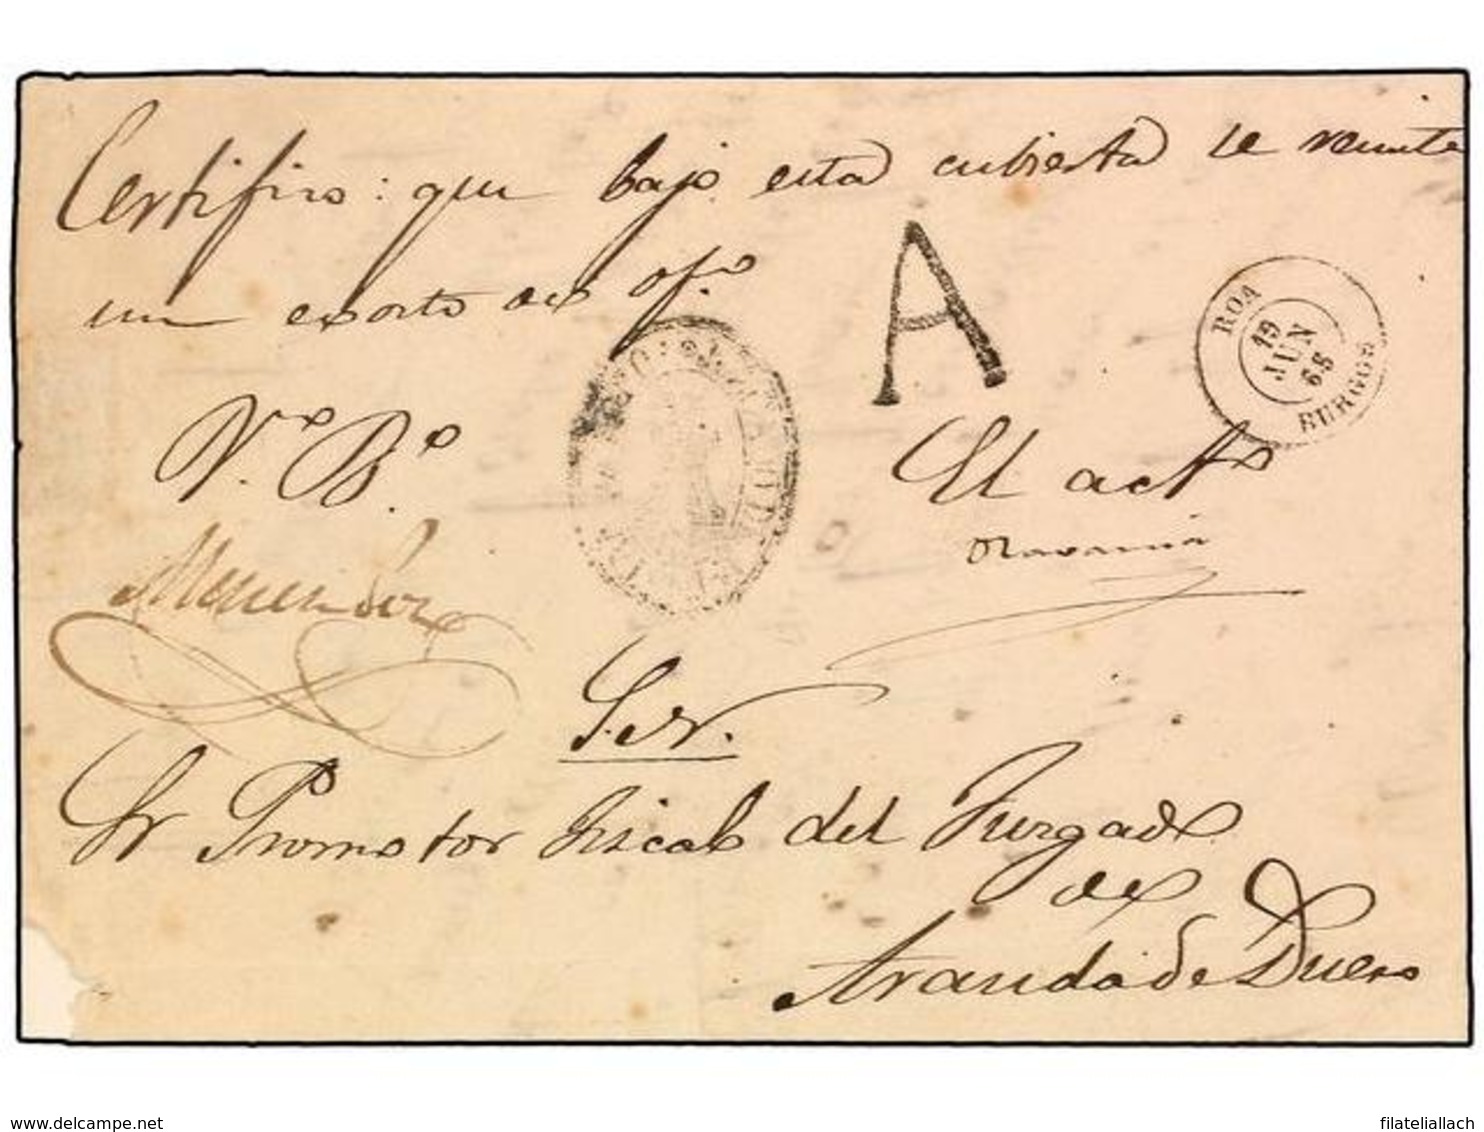 Certifico: que bajo esta cubierta se remite
un exorto de of.º
A
ROA
19
JUN
68
BURGOS
V.º B.º
El act.º
S. N.
Sr Promotor Fiscal del Juzgado
de
Aranda de Duero
delcampe.net
filateliallach